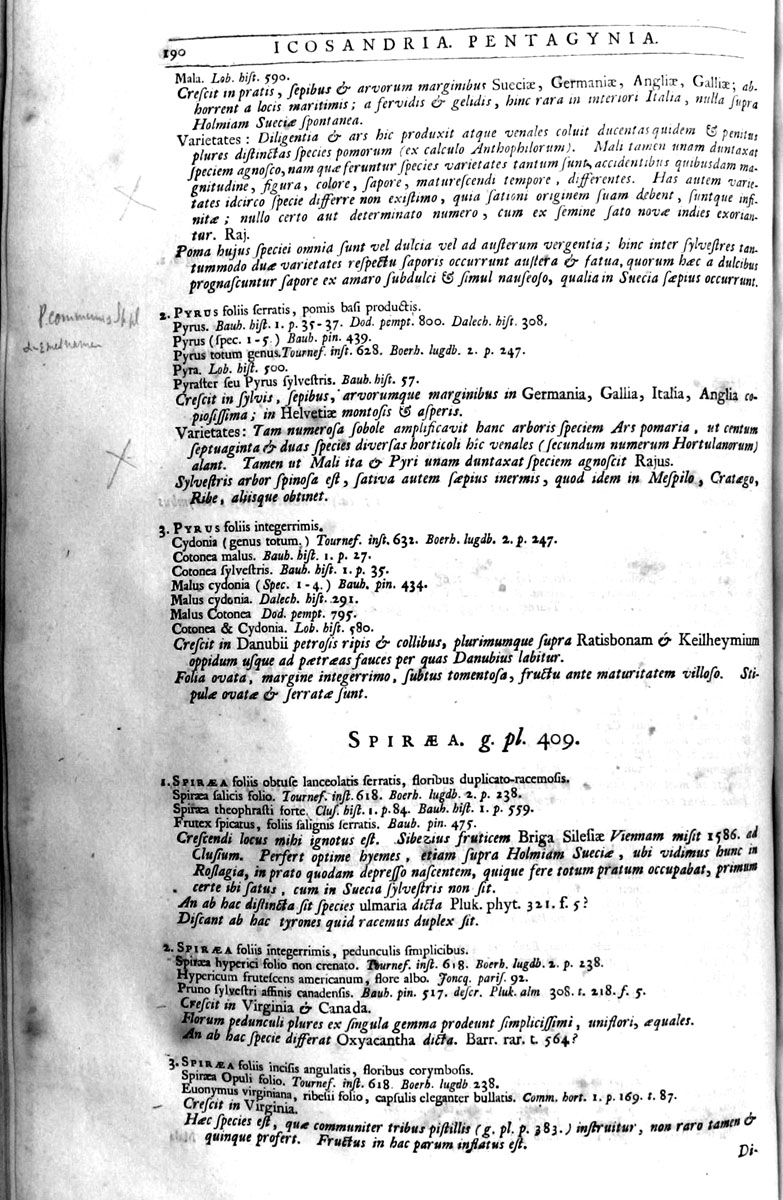 190 ICOSANDRIA. PENTAGYNIA.
Mala. Lob. hiſt. 590.
Creſcit in pratis, ſepibus & arvorum marginibus Sueciæ, Germaniæ, Angliæ, Galliæ; ab-
horrent a locis maritimis; a fervidis & gelidis, hinc rara in interiori Italia, nulla ſupra
Holmiam Sueciæ ſpontanea.
Varietates: Diligentia & ars hic produxit atque venales coluit ducentas quidem & penitus
plures diſtinctas ſpecies pomorum (ex calculo Anthophilorum). Mali tamen unam duntaxat
ſpeciem agnoſco, nam quæ feruntur ſpecies varietates tantum ſunt, accidentibus quibusdam ma-
gnitudine, figura, colore, ſapore, matureſcendi tempore, differentes. Has autem varie-
tates idcirco ſpecie differre non exiſtimo, quia ſationi originem ſuam debent, ſuntque infi-
nitæ; nullo certo aut determinato numero, cum ex ſemine ſato novæ indies exorian-
tur. Raj.
Poma hujus ſpeciei omnia ſunt vel dulcia vel ad auſterum vergentia; hinc inter ſylveſtres tan-
tummodo duæ varietates reſpectu ſaporis occurrunt auſtera & fatua, quorum hæc a dulcibus
prognaſcuntur ſapore ex amaro ſubdulci & ſimul nauſeoſo, qualia in Suecia ſæpius occurrunt.
P. communis Sp. pl
2. PYRUS foliis ſerratis, pomis baſi productis.
Pyrus. Bauh. hiſt. 1. p. 35-37. Dod. pempt. 800. Dalech. hiſt. 308.
Pyrus (ſpec. 1-5) Bauh. pin. 439.
Pyrus totum genus. Tournef. inſt. 628. Boerh. lugdb. 2. p. 247.
Pyra. Lob. hiſt. 500.
Pyraſter ſeu Pyrus ſylveſtris. Bauh. hiſt. 57.
Creſcit in ſylvis, ſepibus, arvorumque marginibus in Germania, Gallia, Italia, Anglia co-
pioſiſſima; in Helvetiæ montoſis & aſperis.
Varietates: Tam numeroſa ſobole amplificavit hanc arboris ſpeciem Ars pomaria, ut centum
ſeptuaginta & duas ſpecies diverſas horticoli hic venales (ſecundum numerum Hortulanorum)
alant. Tamen ut Mali ita & Pyri unam duntaxat ſpeciem agnoſcit Rajus.
Sylveſtris arbor ſpinoſa eſt, ſativa autem ſæpius inermis, quod idem in Meſpilo, Cratægo,
Ribe, aliisque obtinet.
3. PYRUS foliis integerrimis.
Cydonia (genus totum.) Tournef. inſt. 632. Boerh. lugdb. 2. p. 247.
Cotonea malus. Bauh. hiſt. 1. p. 27.
Cotonea ſylveſtris. Bauh. hiſt. 1. p. 35.
Malus cydonia (Spec. 1-4.) Bauh. pin. 434.
Malus cydonia. Dalech. hiſt. 291.
Malus Cotonea Dod. pempt. 795.
Cotonea & Cydonia. Lob. hiſt. 580.
Creſcit in Danubii petroſis ripis & collibus, plurimumque ſupra Ratisbonam & Keilheymium
oppidum uſque ad pætræas fauces per quas Danubius labitur.
Folia ovata, margine integerrimo, ſubtus tomentoſa, fructu ante maturitatem villoſo. Sti-
pulæ ovatæ & ſerratæ ſunt.
SPIRÆA. g. pl. 409.
1. SPIRÆA foliis obtuſe lanceolatis ſerratis, floribus duplicato-racemoſis.
Spiræa ſalicis folio. Tournef. inſt. 618. Boerh. lugdb. 2. p. 238.
Spiræa theophraſti forte. Cluſ. hiſt. 1. p. 84. Bauh. hiſt. 1. p. 559.
Frutex ſpicatus, foliis ſalignis ſerratis. Bauh. pin. 475.
Creſcendi locus mihi ignotus eſt. Sibezius fruticem Briga Sileſiæ Viennam miſit 1586. ad
Cluſium. Perfert optime hyemes, etiam ſupra Holmiam Sueciæ, ubi vidimus hunc in
Roſlagia, in prato quodam depreſſo naſcentem, quique fere totum pratum occupabat, primum
certe ibi ſatus, cum in Suecia ſylveſtris non ſit.
An ab hac diſtincta ſit ſpecies ulmaria dicta Pluk. phyt. 321. f. 5?
Diſcant ab hac tyrones quid racemus duplex ſit.
2. SPIRÆA foliis integerrimis, pedunculis ſimplicibus.
Spiræa hyperici folio non crenato. Tournef. inſt. 618. Boerh. lugdb. 2. p. 238.
Hypericum fruteſcens americanum, flore albo. Joncq. pariſ. 92.
Pruno ſylveſtri affinis canadenſis. Bauh. pin. 517. deſcr. Pluk. alm 308. t. 218. f. 5.
Creſcit in Virginia & Canada.
Florum pedunculi plures ex ſingula gemma prodeunt ſimpliciſſimi, uniflori, æquales.
An ab hac ſpecie differat Oxyacantha dicta. Barr. rar. t. 564?
3. SPIRÆA foliis inciſis angulatis, floribus corymboſis.
Spiræa Opuli folio. Tournef. inſt. 618 Boerh. lugdb 238.
Euonymus virginiana, ribeſii folio, capſulis eleganter bullatis. Comm. hort. 1. p. 169. t. 87.
Creſcit in Virginia.
Hæc ſpecies eſt, quæ communiter tribus piſtillis (g. pl. p. 383.) inſtruitur, non raro tamen &
quinque profert. Fructus in hac parum inflatus eſt.
Di-